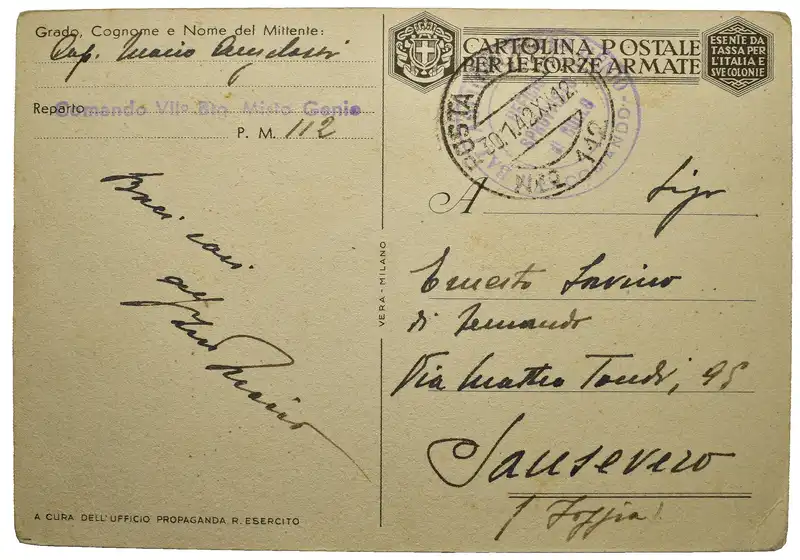 Grado, Cognome e Nome del Mittente:
Cap. Mario
Reparto Comando VII° Btg Misto Genio
P. M. 112
Baci cari
Mario
A CURA DELL'UFFICIO PROPAGANDA R. ESERCITO
VERA - MILANO
CARTOLINA POSTALE
PER LE FORZE ARMATE
ESENTE DA
TASSA PER
L'ITALIA E
SVE COLONIE
POSTA
30.1.42.XX.12
N.112
COMANDO
A Sigr
Ernesto
di Fernando
Via Matteo Tondi, 95
Sansevero
(Foggia)